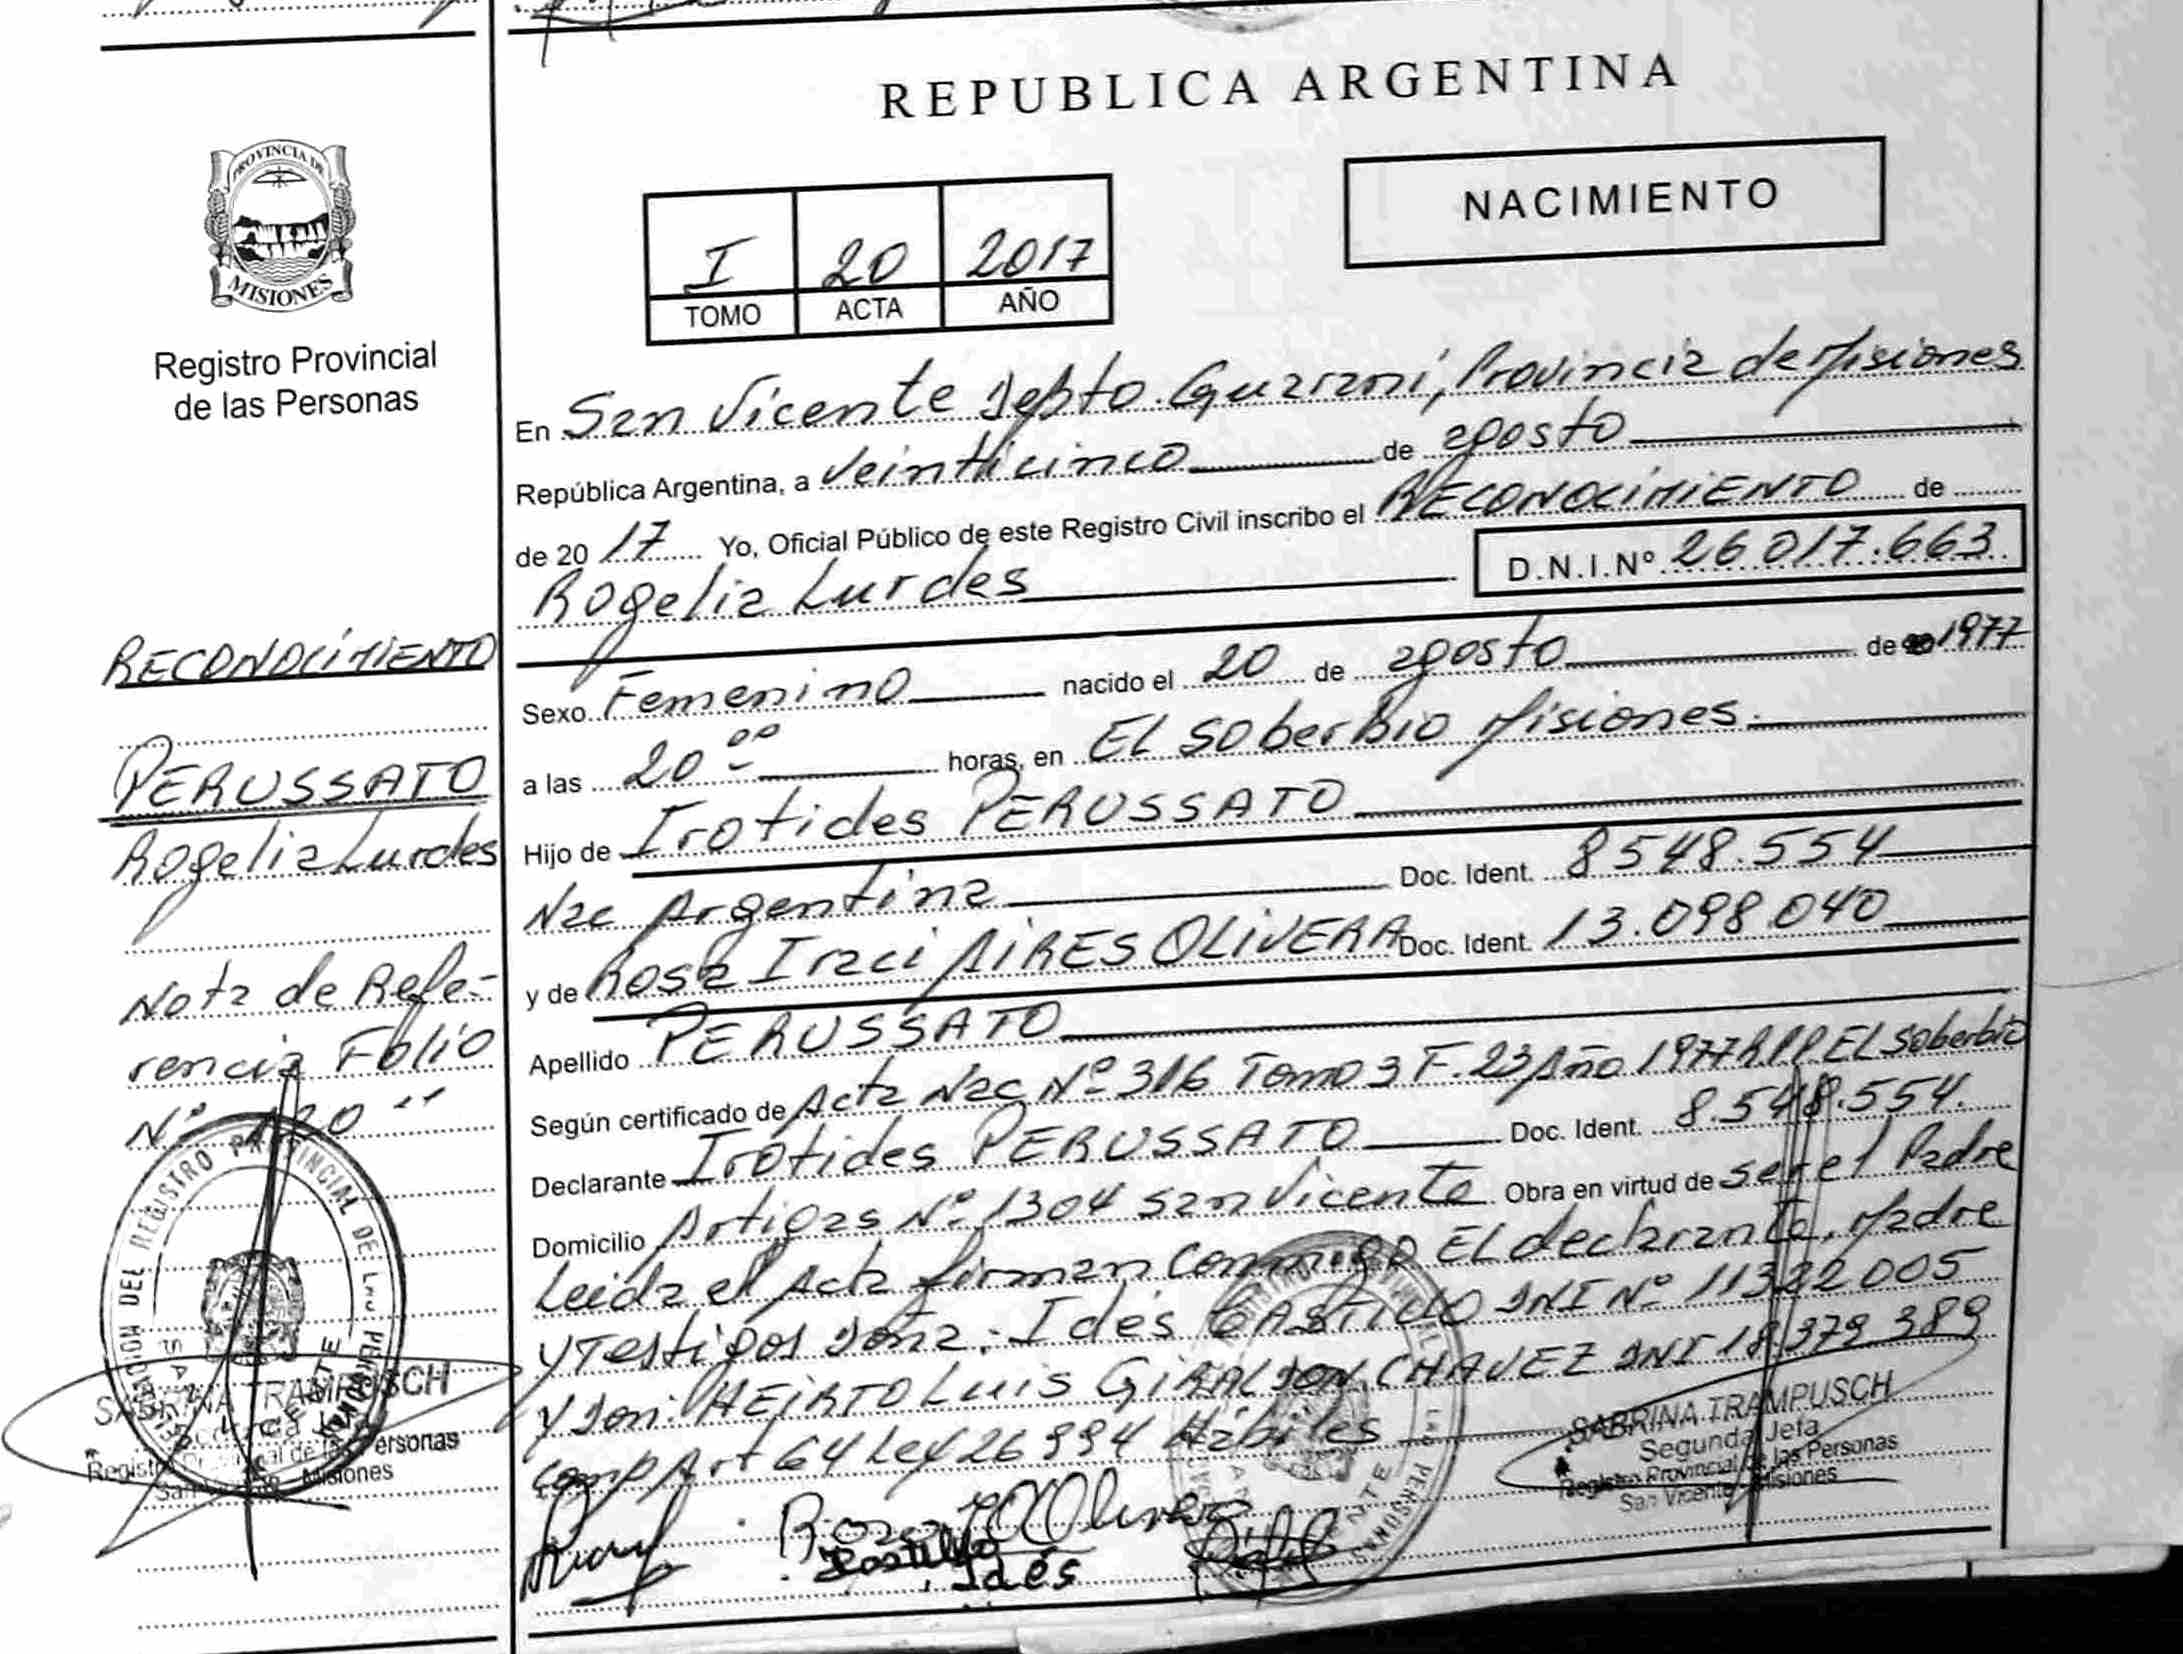 REPUBLICA ARGENTINA
NACIMIENTO
I 20 2017
TOMO ACTA AÑO
PROVINCIA DE
MISIONES
Registro Provincial
de las Personas
RECONOCIMIENTO
PERUSSATO
Rogelia Lurdes
Nota de Refe-
rencia Folio
Nº 120
En San Vicente Depto. Guaraní, Provincia de Misiones
República Argentina, a veinticinco de agosto
de 20 17 Yo, Oficial Público de este Registro Civil inscribo el RECONOCIMIENTO de
Rogelia Lurdes D.N.I.Nº 26 017.663
Sexo Femenino nacido el 20 de agosto de 1977
a las 20 00 horas, en EL Soberbio Misiones.
Hijo de Irotides PERUSSATO
Nac Argentina Doc. Ident. 8548.554
y de Rosa Iraci AIRES OLIVERA Doc. Ident. 13.098 040
Apellido PERUSSATO
Según certificado de Acta Nac Nº 316 Tomo 3 F. 23 Año 1977 R.P.P. EL Soberbio
Declarante Irotides PERUSSATO Doc. Ident. 8.548.554.
Domicilio Artigas Nº 1304 San Vicente Obra en virtud de ser el Padre
Leida el Acta firman conmigo EL declarante, Madre
y Testigos Doña: Ides CASTILLO DNI Nº 11322005
y Don: HEIRTO Luis GIRALDON CHAVEZ DNI 18 379 389
comp Art 64 Ley 26 994 Hábiles
SABRINA TRAMPUSCH
Segunda Jefa
Registro Provincial de las Personas
San Vicente - Misiones
SABRINA TRAMPUSCH
Registro Provincial de las Personas
Misiones
Rosa Olivera
Castillo
Ides